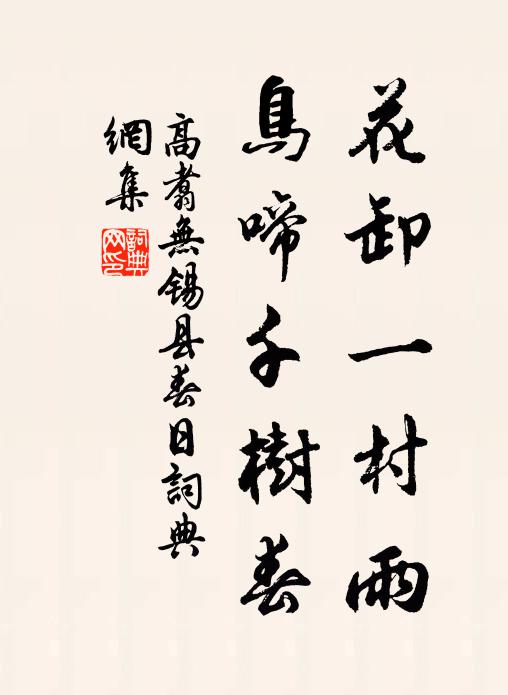 花卸一村雨
鳥啼千樹春
高翥無錫县春日詞典
網集
詞典
网印